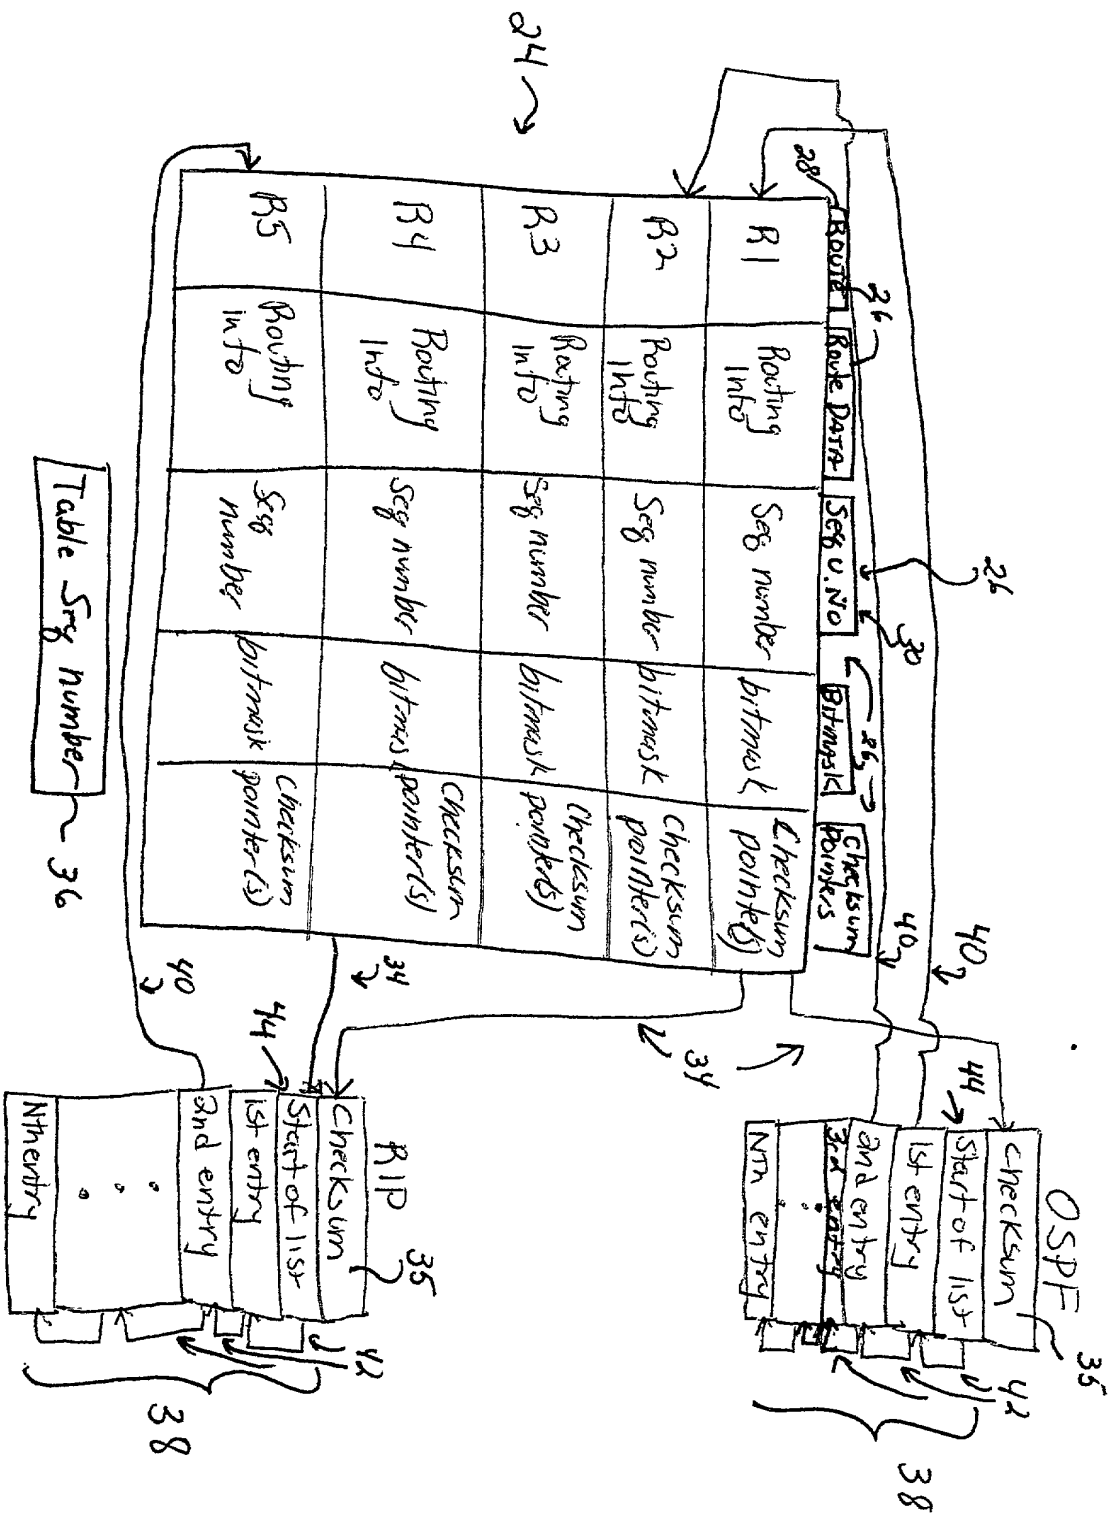 24
28
26
26
30
26
ROUTE
Route DATA
Seq U. No
Bitmask
Checksum
pointers
R1
Routing
Info
Seq number
bitmask
Checksum
pointer(s)
R2
Routing
Info
Seq number
bitmask
Checksum
pointer(s)
R3
Routing
Info
Seq number
bitmask
Checksum
pointer(s)
R4
Routing
Info
Seq number
bitmask
Checksum
pointer(s)
R5
Routing
info
Seq
number
bitmask
Checksum
pointer(s)
Table Seq number
36
40
40
40
34
34
44
44
OSPF
Checksum
Start of list
1st entry
2nd entry
3rd entry
Nth entry
35
42
38
RIP
Checksum
Start of list
1st entry
2nd entry
Nth entry
35
42
38